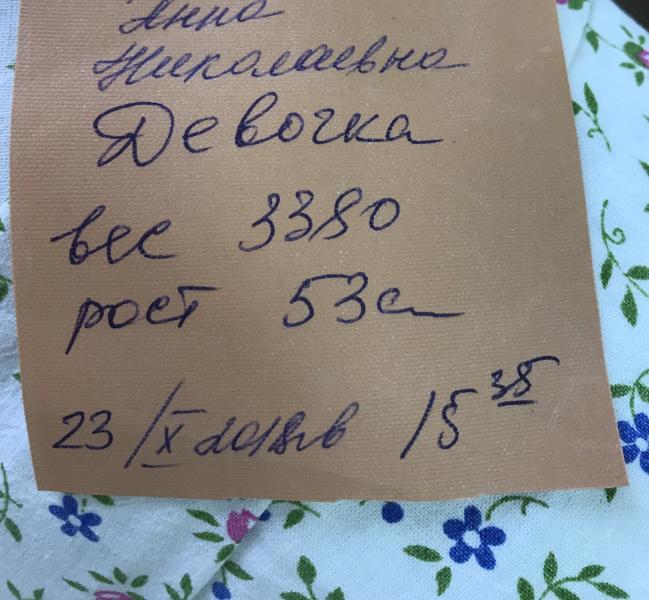 Анна
Николаевна
Девочка
вес 3380
рост 53см
23/X 2018г в 15 35